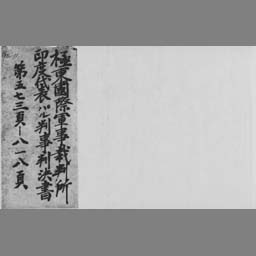 極東國際軍事裁判所
印度代表パル判事判決書
第五七三頁—八一八頁